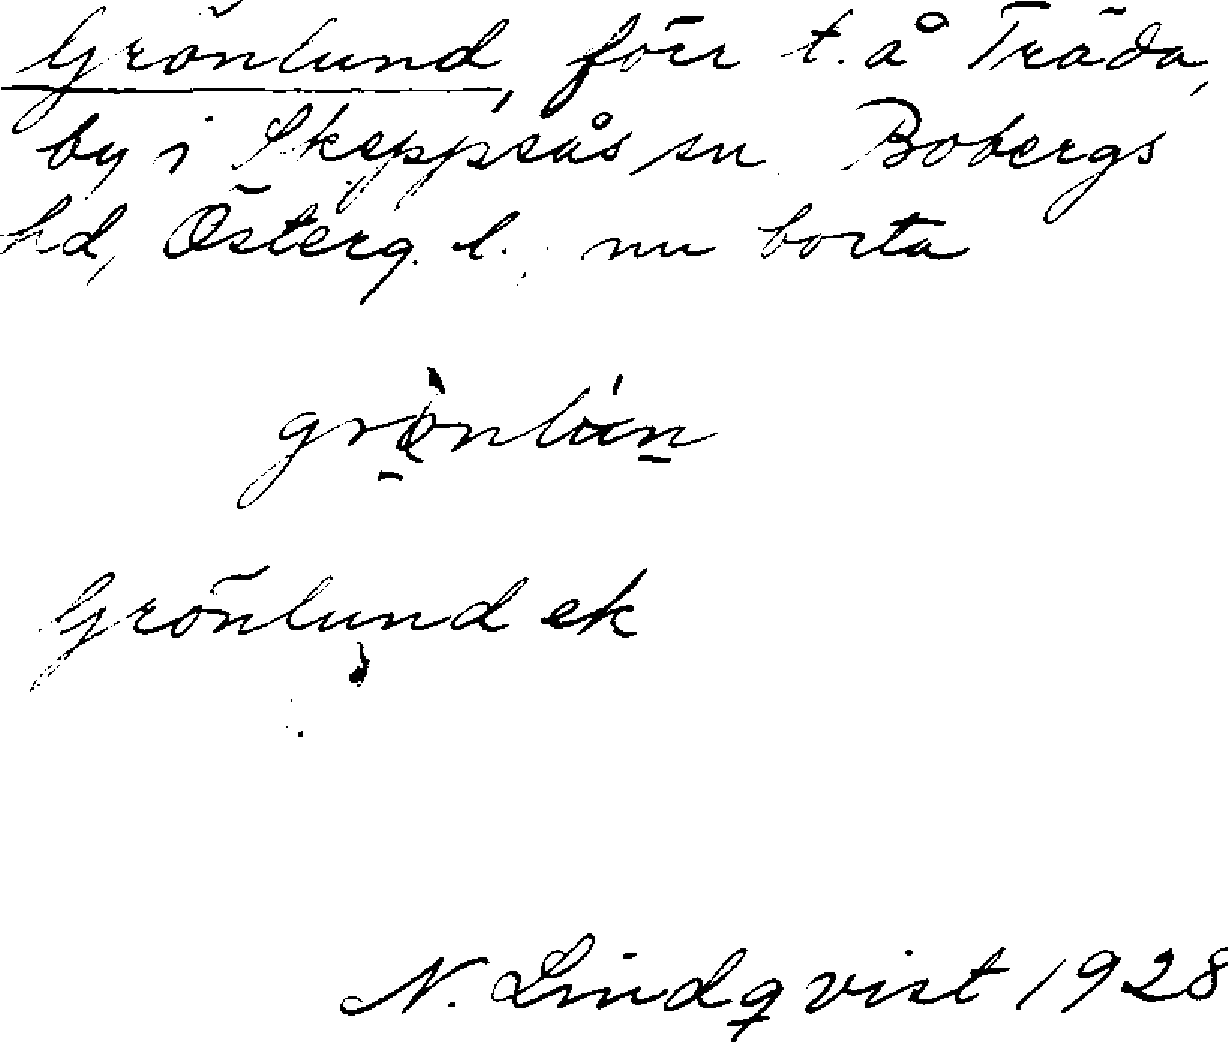 Grönlund, förr t. å Träda,
by i Skeppsås sn Bobergs
hd, Österg. l., nu borta
grö̀nlún
Grönlund ek
N. Lindqvist 1928